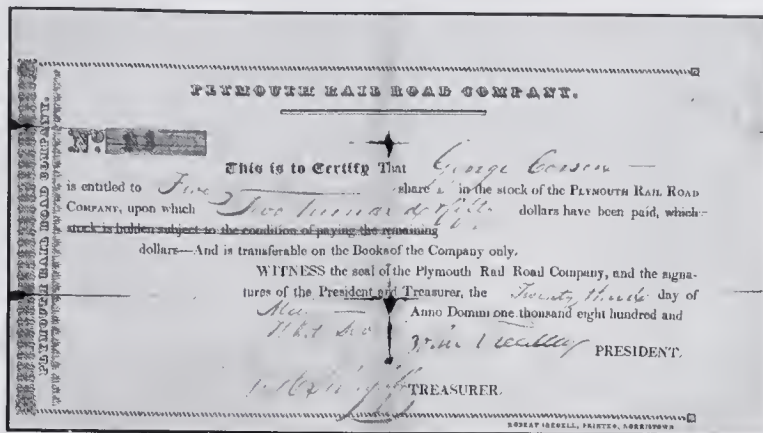 PLYMOUTH RAIL ROAD COMPANY.
PLYMOUTH RAIL ROAD COMPANY.
No.
This is to Certify That George Corson
is entitled to Five shares in the stock of the PLYMOUTH RAIL ROAD
COMPANY, upon which Two hundred & fifty dollars have been paid, which
stock is holden subject to the condition of paying the remaining
dollars—And is transferable on the Books of the Company only.
WITNESS the seal of the Plymouth Rail Road Company, and the signa-
tures of the President and Treasurer, the Twenty third day of
Anno Domini one thousand eight hundred and
PRESIDENT.
TREASURER.
ROBERT IREDELL, PRINTER, NORRISTOWN